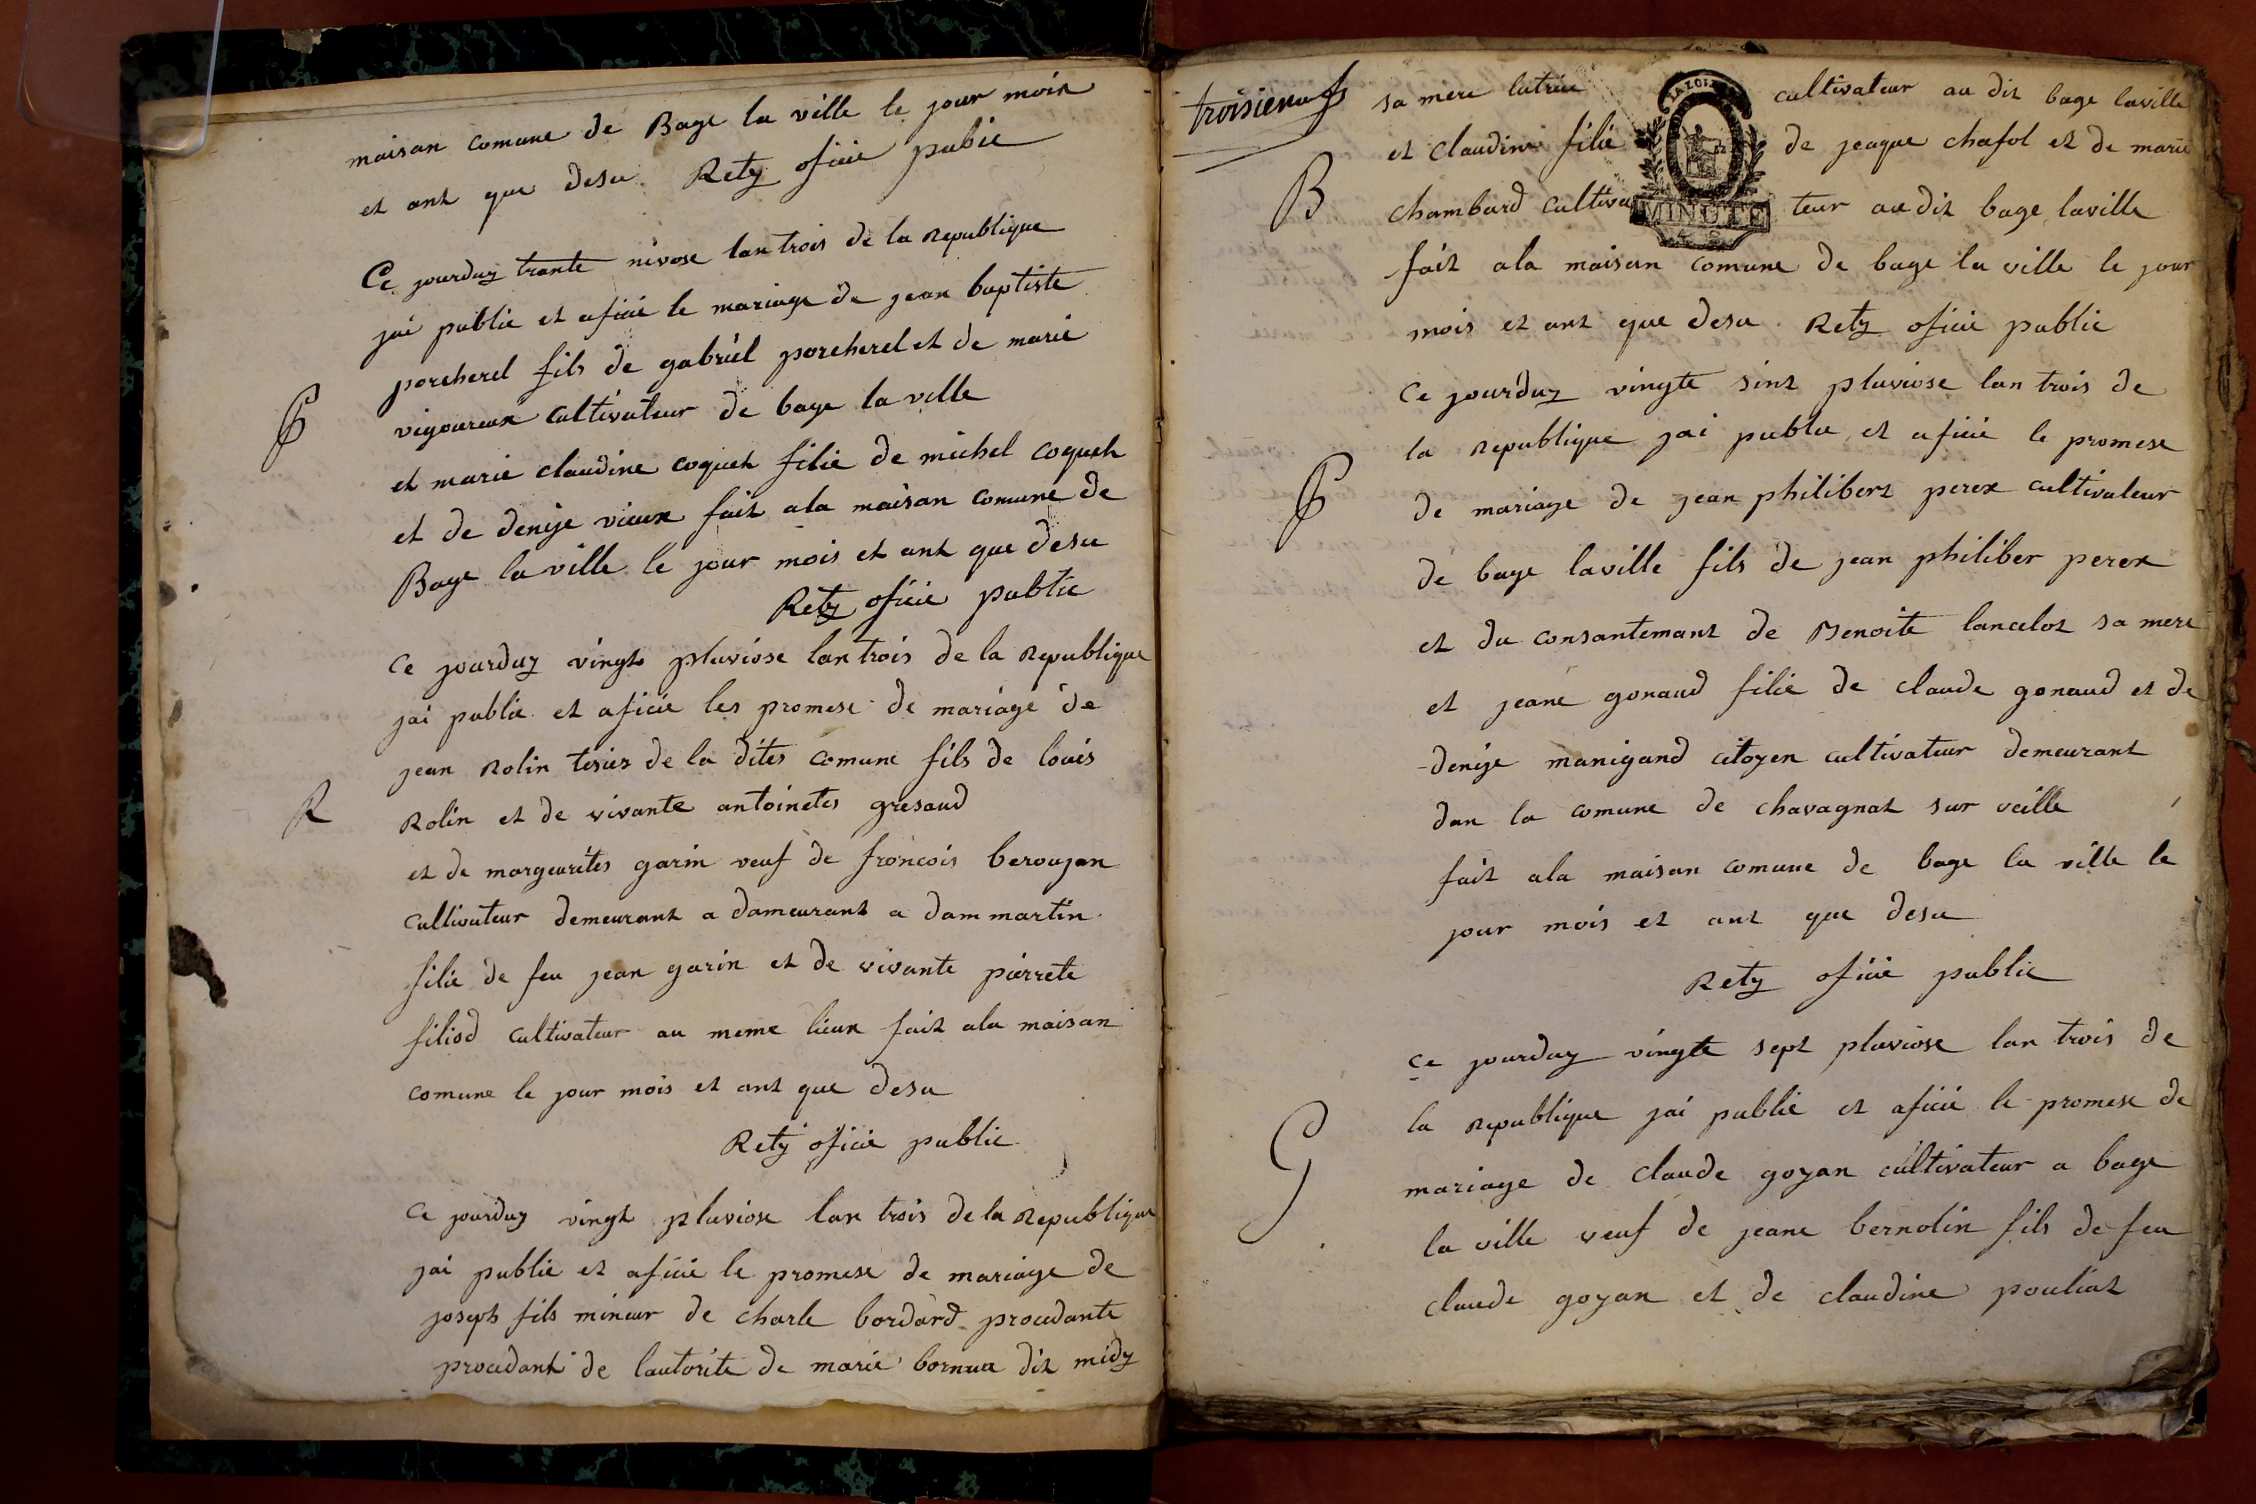 maisan comune de Bage la ville le jour moix
et ant que desu Rety oficie public
Ce jourduy trante nivose lan trois de la Republique
jai public et aficié le mariage de jean baptiste
porcherel fils de gabriel porcherel et de marie
P
vigoureux cultivateur de bage la ville
et marie claudine coquet filie de michel coquet
et de denije vieux fait ala maisan comune de
Baye la ville le jour mois et ant que desu
Rety oficie public
Ce jourduy vingt pluviose lan trois de la Republique
jai public et aficie les promese de mariage de
jean Rolin tisier de la dites comune fils de louis
R
Rolin et de vivante antoinetes gresaud
et de margeurites garin veuf de froncois beroujon
cultivateur demeurant a dameurant a dam martin
filie de feu jean garin et de vivante pierrete
filiod cultivateur au meme lieux fait ala maisan
comune le jour mois et ant que desu
Rety oficie public
Ce jourduy vingt pluviose lan trois de la Republique
jai public et aficie le promese de mariage de
joseph fils mineur de charle bordard procedante
procedant de lautorite de marie bornua dit midy
troisieme f
sa mere cultivateur au dit bage laville
LA LOI
et claudine filie de jeaque chafol et de marie
B
chambard cultivateur audit bage laville
MINUTE
fait ala maisan comune de bage la ville le jour
mois et ant que desu. Rety oficie public
Ce jourduy vingte sint pluviose lan trois de
la Republique jai public et aficie le promese
P
de mariage de jean philibert perex cultivateur
de baye laville fils de jean philiber perex
et du consantemant de Benoite lancelot sa mere
et jeane gonaud filie de claude gonaud et de
denije manigand citoyen cultivateur demeurant
dan la comune de chavagnat sur veille
fait ala maisan comune de bage la ville le
jour mois et ant que desu
Rety oficie public
Ce jourduy vingte sept pluviose lan trois de
la Republique jai public et aficie le promese de
G
mariage de claude goyan cultivateur a bage
la ville veuf de jeane bernolin fils de feu
claude goyan et de claudine pouliat